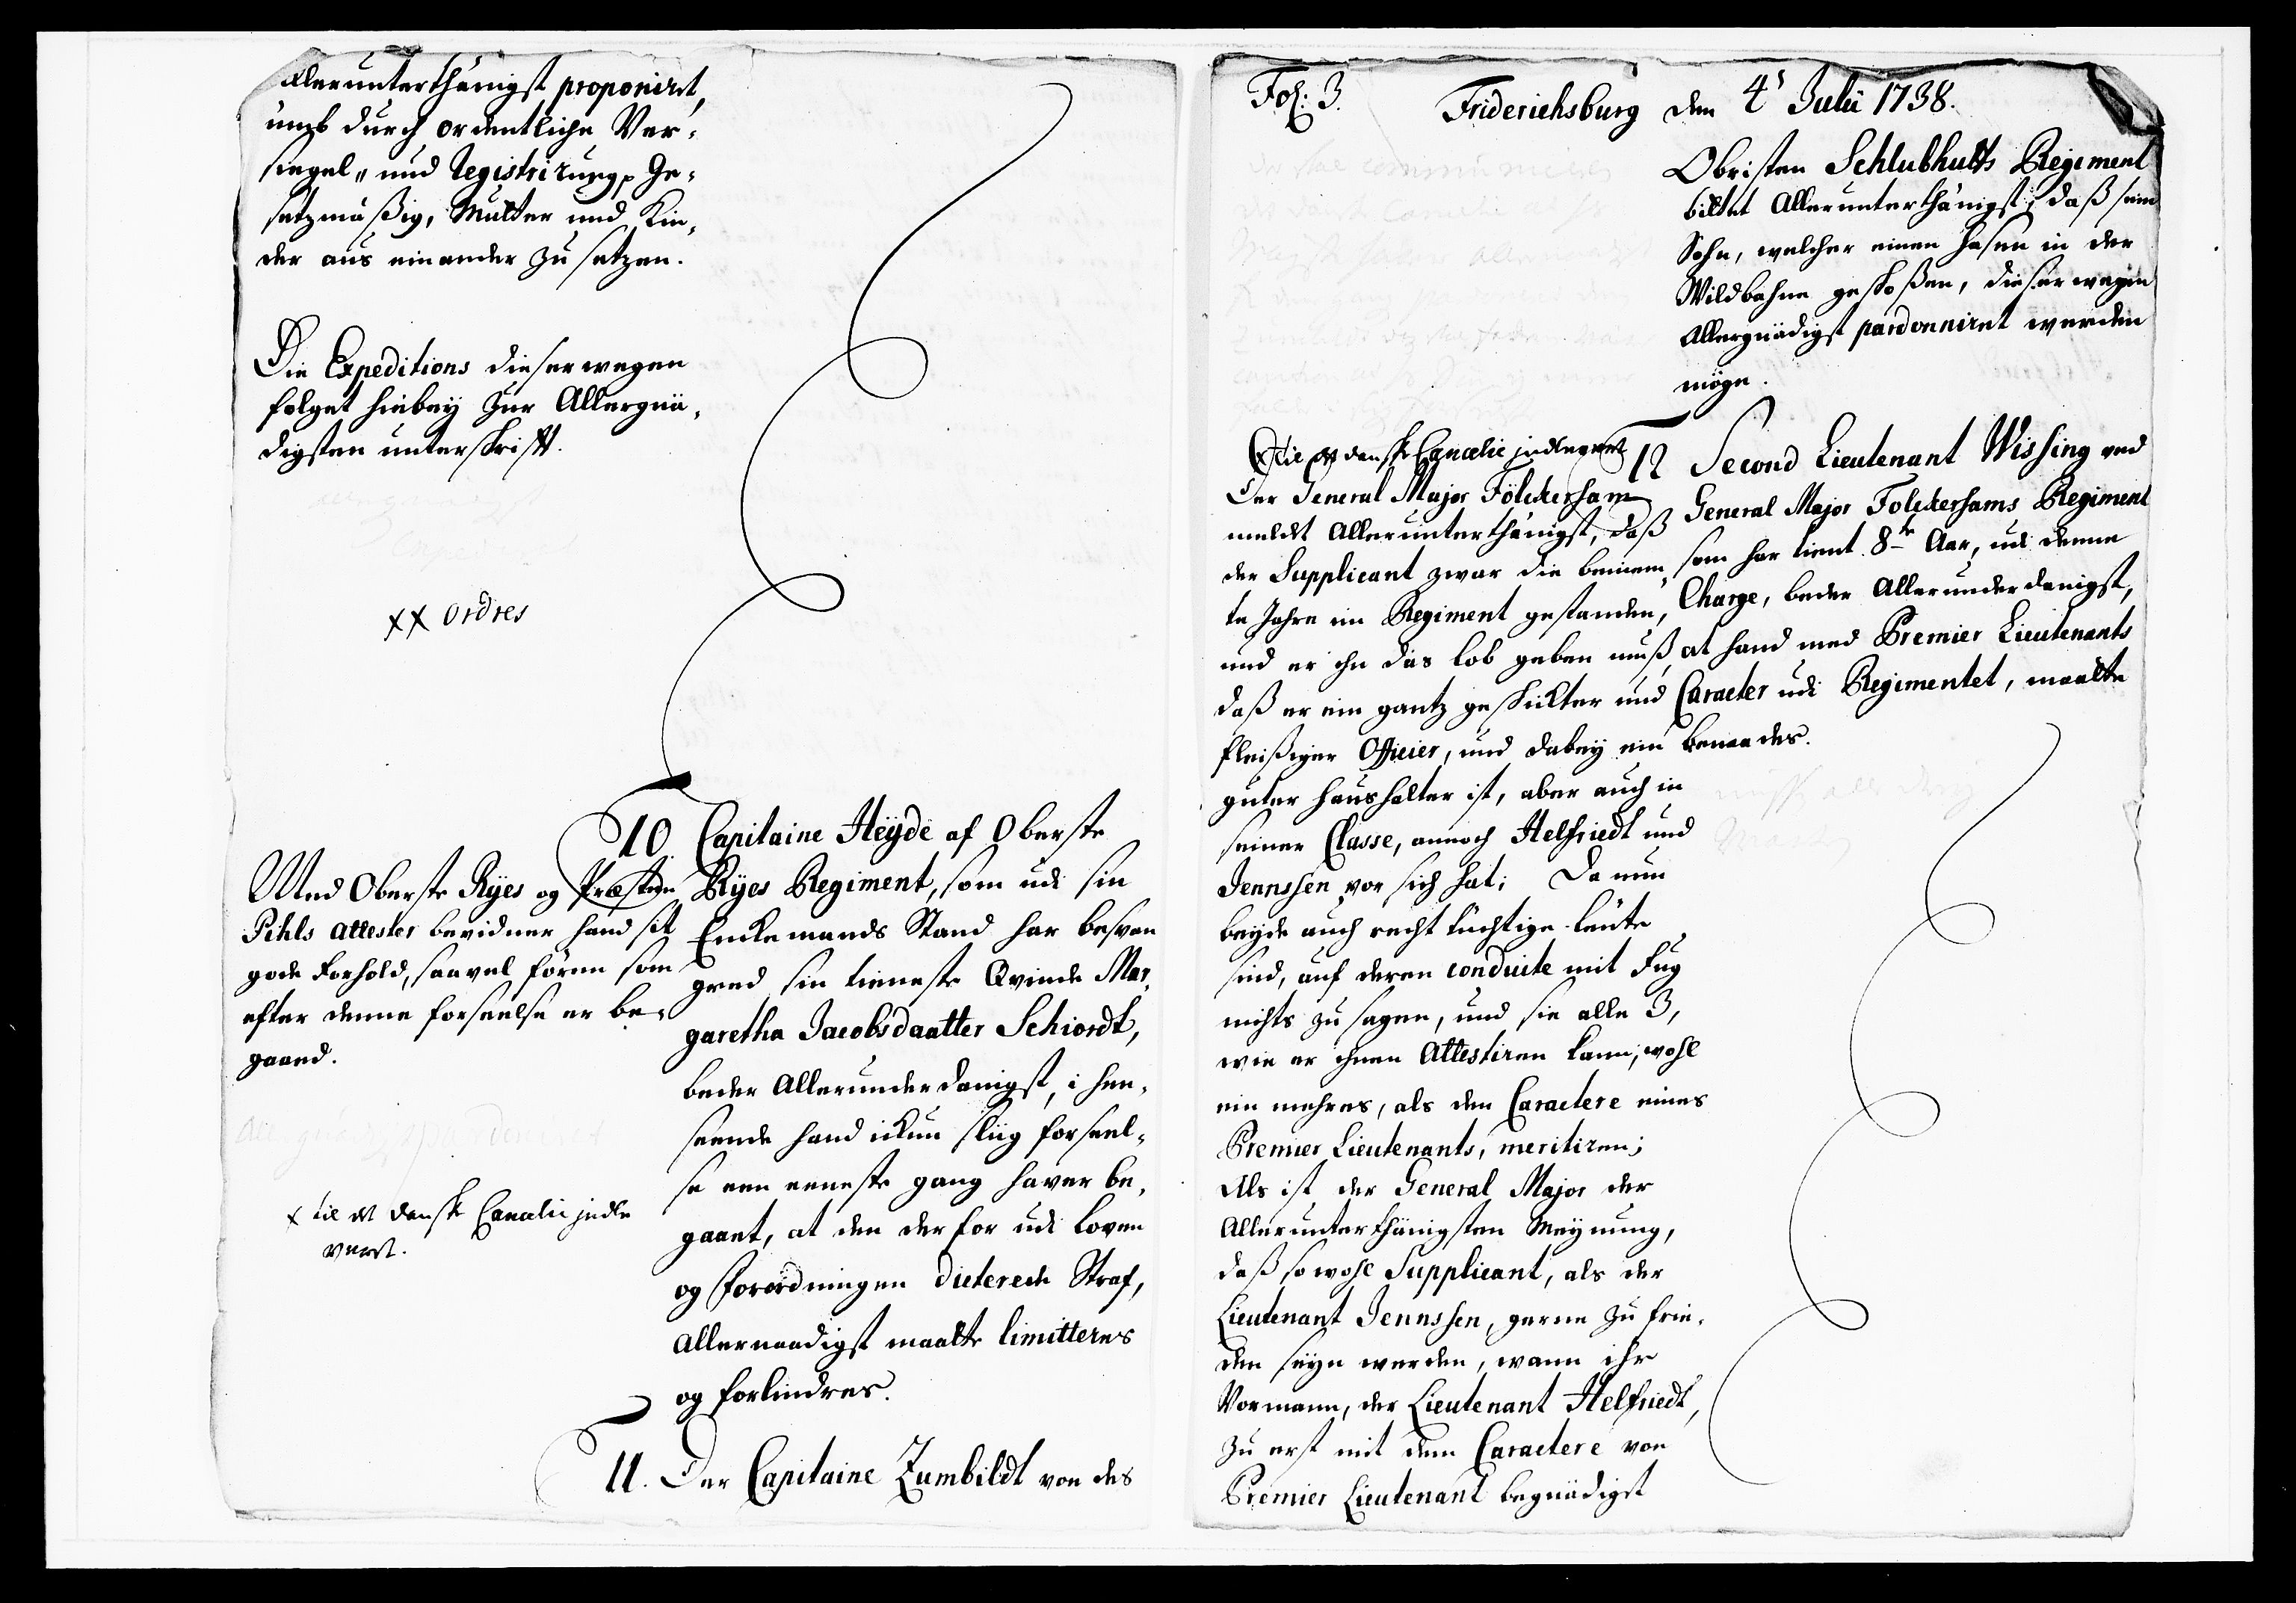 Allerunterthänigst proponiret,
umb durch ordentliche Ver-
siegel„ und Registrirung, Ge-
setzmäßig, Mutter und Kin-
der aus einander zu setzen.
Die Expeditions dieserwegen
folget hiebey zur Allergnä-
digsten unterschrifft.
xx Ordres
Med Oberste Ryes og Præsten
Pihls attester bevidner hand sit
gode Forhold, saavel förrn som
efter denne forseelse er be-
gaaed.
x til det danske Cancelie indle
veret.
10 Capitaine Heyde af Oberste
Ryes Regiment, som udi sin
Enkemands Stand har besvan
gred sin tieneste Qvinde Mar-
garetha Jacobsdaatter Schiordt,
beder Allerunderdanigst, i hen-
seende hand ickun sliig forseel-
se een eeneste gang haver be-
gaaet, at den derfor udi Loven
og Forordningen dicterede Straf,
Allernaadigst maatte limitteres
og forlindres.
11. Der Capitaine Zumbildt von des
Fol: 3.
Friderichsburg den 4t Julii 1738.
Obristen Schlubhutts Regiment
bittet Allerunterthänigst, daß sein
Sohn, welcher einen Hasen in der
Wildbahne geschoßen, dieserwegen
Allergnädigst pardonniret werden
möge.
x til det danske Cancelie indleveret
Der General Major Fölckersham
meldet Allerunterthänigst, daß
der Supplicant zwar die benien-
te Jahre im Regiment gestanden,
und er ihn das Lob geben muß,
daß er ein gantz geschickter und
fleißiger Officier, und dabey ein
guter Haushalter ist, aber auch in
seiner Classe, annoch Helfriedt und
Jennssen vor sich hat; Da nun
beyde auch recht tüchtige Leute
sind, auf deren conduite mit Fug
nichts zu sagen, und sie alle 3,
wie er ihnen Attestiren kann, wohl
ein mehres, als den Caractere eines
Premier Lieutenants, meritiren;
Als ist der General Major der
Allerunterthänigsten Meynung,
daß sowohl Supplicant, als der
Lieutenant Jennssen, gerne zu frie-
den seyn werden, wann ihr
Vormann, der Lieutenant Helfriedt,
zu erst mit dem Caractere von
Premier Lieutenant begnädigst
12 Second Lieutenant Wissing ved
General Major Folckershams Regiment
som har tient 8te Aar, udi denne
Charge, beder Allerunderdanigst,
at hand med Premier Lieutenants
Caracter udi Regimentet, maatte
benaades.